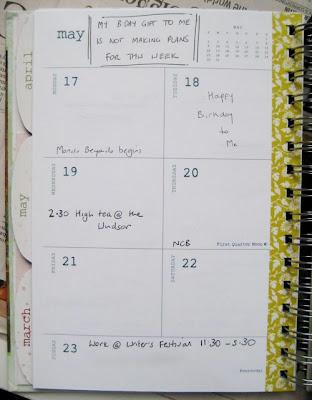 april
may
march
may
MY B'DAY GIFT TO ME
IS NOT MAKING PLANS
FOR THIS WEEK
MAY
MONDAY
17
Mondo Beyondo begins
TUESDAY
18
Happy
Birthday
to
Me
WEDNESDAY
19
2:30 High tea @ the
Windsor
THURSDAY
20
NCB
First Quarter Moon
FRIDAY
21
SATURDAY
22
SUNDAY
23
Work @ Writer's Festival 11:30 - 5:30
Pentecost